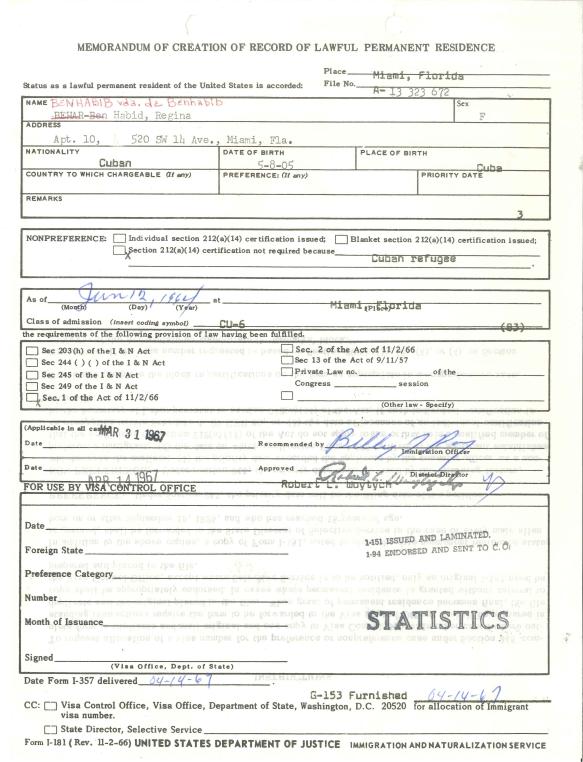 MEMORANDUM OF CREATION OF RECORD OF LAWFUL PERMANENT RESIDENCE
Place Miami, Florida
Status as a lawful permanent resident of the United States is accorded: File No. A- 13 323 672
NAME BENHABIB vda. de Benhabib Sex
BEHAR-Ben Habid, Regina F
ADDRESS
Apt. 10, 520 SW 14 Ave., Miami, Fla.
NATIONALITY DATE OF BIRTH PLACE OF BIRTH
Cuban 5-8-05 Cuba
COUNTRY TO WHICH CHARGEABLE (If any) PREFERENCE: (If any) PRIORITY DATE
REMARKS
3
NONPREFERENCE: Individual section 212(a)(14) certification issued; Blanket section 212(a)(14) certification issued;
X Section 212(a)(14) certification not required because
Cuban refugee
As of Jun 12, 1964 at Miami, Florida
(Month) (Day) (Year) (Place)
Class of admission (insert coding symbol) CU-6 (83)
the requirements of the following provision of law having been fulfilled.
Sec 203(h) of the I & N Act Sec. 2 of Act of 11/2/66
Sec 244 ( ) ( ) of the I & N Act Sec 13 of the Act of 9/11/57
Sec 245 of the I & N Act Private Law no. of the
Sec 249 of the I & N Act Congress session
X Sec. 1 of the Act of 11/2/66
(Other law - Specify)
(Applicable in all cases) MAR 31 1967
Date Recommended by Billy
Immigration Officer
Date APR 14 1967 Approved
District Director
FOR USE BY VISA CONTROL OFFICE Robert L. Woytych
Date
Foreign State
I-151 ISSUED AND LAMINATED.
I-94 ENDORSED AND SENT TO C.O.
Preference Category
Number
Month of Issuance STATISTICS
Signed
(Visa Office, Dept. of State)
Date Form I-357 delivered 04-14-67
G-153 Furnished 04-14-67
CC: Visa Control Office, Visa Office, Department of State, Washington, D.C. 20520 for allocation of immigrant
visa number.
State Director, Selective Service
Form I-181 (Rev. 11-2-66) UNITED STATES DEPARTMENT OF JUSTICE IMMIGRATION AND NATURALIZATION SERVICE